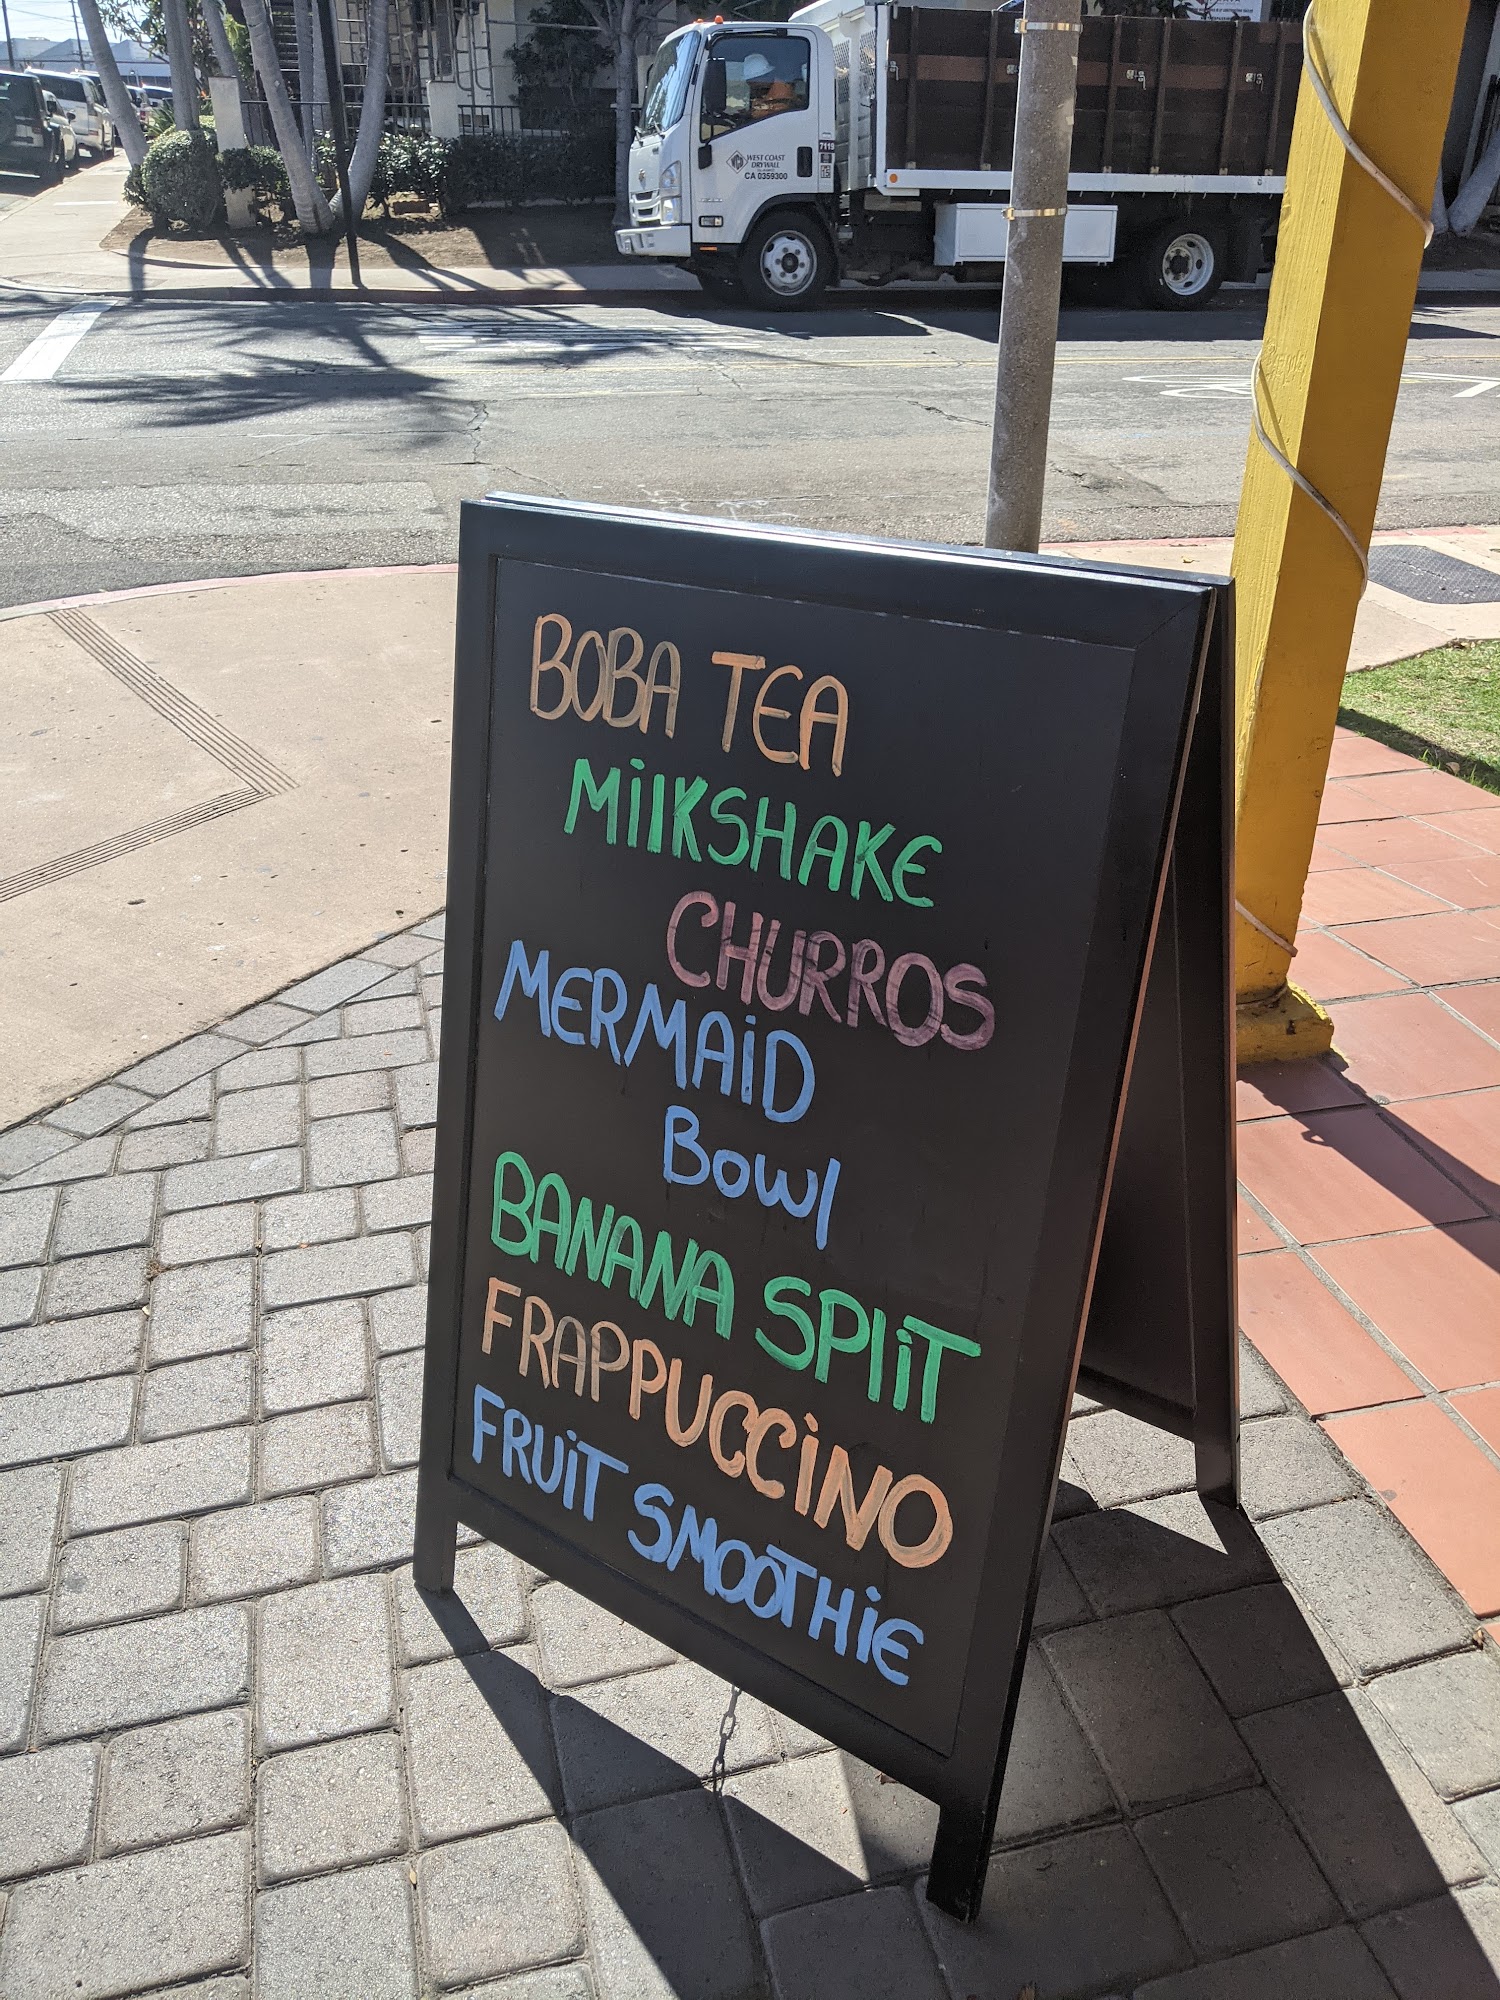 WEST COAST
DRYWALL
CA 0359300
7119
BOBA TEA
MiLKSHAKE
CHURROS
MERMAiD
BOWl
BANANA SPLiT
FRAPPUCCiNO
FRUiT SMOOTHiE